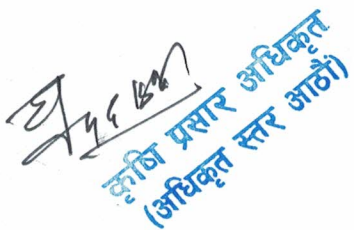 कृषि प्रसार अधिकृत
(अधिकृत स्तर आठौं)